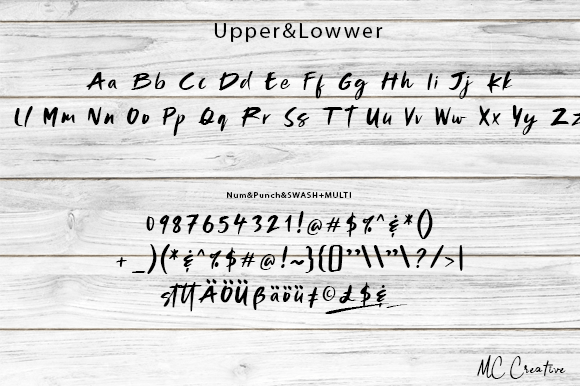 Upper&Lowwer
Aa Bb Cc Dd Ee Ff Gg Hh Ii Jj Kk
Ll Mm Nn Oo Pp Qq Rr Ss Tt Uu Vv Ww Xx Yy Zz
Num&Punch&SWASH+MULTI
0987654321!@#$%^&*()
+_)(*&^%$#@!~}{[]"\\"\?/>|
ÄÖÜßäöü
©£$&
MC Creative